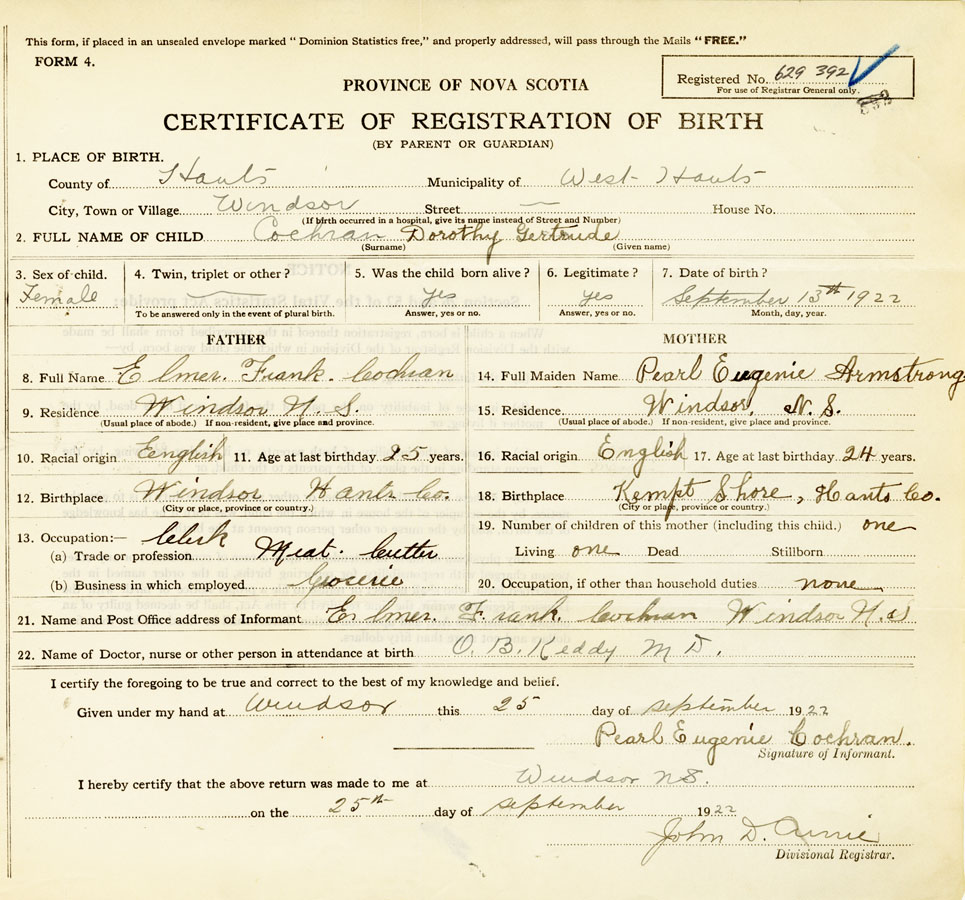 This form, if placed in an unsealed envelope marked "Dominion Statistics free," and properly addressed, will pass through the Mails "FREE."
FORM 4.
Registered No. 629 392
For use of Registrar General only.
PROVINCE OF NOVA SCOTIA
CERTIFICATE OF REGISTRATION OF BIRTH
(BY PARENT OR GUARDIAN)
1. PLACE OF BIRTH.
County of Hants Municipality of West Hants
City, Town or Village Windsor Street — House No.
(If birth occurred in a hospital, give its name instead of Street and Number)
2. FULL NAME OF CHILD Cochran Dorothy Gertrude
(Surname) (Given name)
3. Sex of child. 4. Twin, triplet or other? 5. Was the child born alive? 6. Legitimate? 7. Date of birth?
Female — yes yes September 13th 1922
To be answered only in the event of plural birth. Answer, yes or no. Answer, yes or no. Month, day, year.
FATHER MOTHER
8. Full Name Elmer. Frank. Cochran 14. Full Maiden Name Pearl Eugenie Armstrong
9. Residence Windsor N. S. 15. Residence Windsor, N. S.
(Usual place of abode.) If non-resident, give place and province. (Usual place of abode.) If non-resident, give place and province.
10. Racial origin English 11. Age at last birthday 25 years. 16. Racial origin English 17. Age at last birthday 24 years.
12. Birthplace Windsor Hants Co. 18. Birthplace Kempt Shore, Hants Co.
(City or place, province or country.) (City or place, province or country.)
19. Number of children of this mother (including this child.) one
13. Occupation:— Clerk
(a) Trade or profession Meat. Cutter Living one Dead Stillborn
(b) Business in which employed Grocerie 20. Occupation, if other than household duties none
21. Name and Post Office address of Informant Elmer. Frank. Cochran Windsor N. S
22. Name of Doctor, nurse or other person in attendance at birth O. B. Keddy M D.
I certify the foregoing to be true and correct to the best of my knowledge and belief.
Given under my hand at Windsor this 25 day of september 1922
Pearl Eugenie Cochran.
Signature of Informant.
I hereby certify that the above return was made to me at Windsor NS.
on the 25th day of september 1922
John D.
Divisional Registrar.